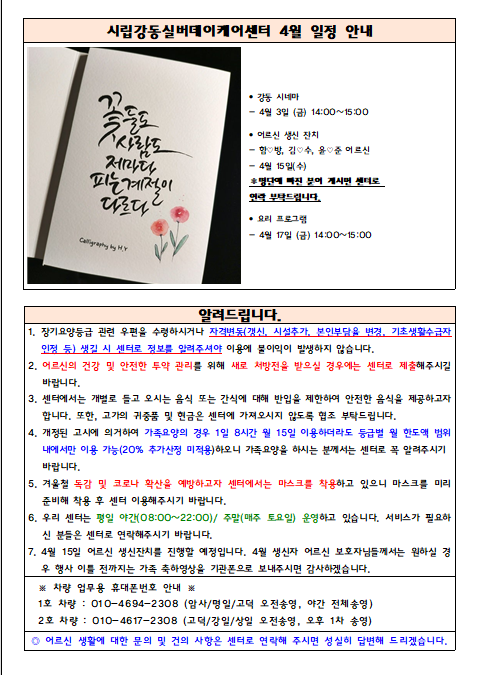 시립강동실버데이케어센터 4월 일정 안내
꽃들도
사람도
저마다
피는계절이
다르다
Calligraphy by H.Y
• 강동 시네마
- 4월 3일 (금) 14:00~15:00
• 어르신 생신 잔치
- 함♡방, 김♡수, 윤♡준 어르신
- 4월 15일(수)
※명단에 빠진 분이 계시면 센터로
연락 부탁드립니다.
• 요리 프로그램
- 4월 17일 (금) 14:00~15:00
알려드립니다.
1. 장기요양등급 관련 우편을 수령하시거나 자격변동(갱신, 시설추가, 본인부담율 변경, 기초생활수급자
인정 등) 생길 시 센터로 정보를 알려주셔야 이용에 불이익이 발생하지 않습니다.
2. 어르신의 건강 및 안전한 투약 관리를 위해 새로 처방전을 받으실 경우에는 센터로 제출해주시길
바랍니다.
3. 센터에서는 개별로 들고 오시는 음식 또는 간식에 대해 반입을 제한하여 안전한 음식을 제공하고자
합니다. 또한, 고가의 귀중품 및 현금은 센터에 가져오시지 않도록 협조 부탁드립니다.
4. 개정된 고시에 의거하여 가족요양의 경우 1일 8시간 월 15일 이용하더라도 등급별 월 한도액 범위
내에서만 이용 가능(20% 추가산정 미적용)하오니 가족요양을 하시는 분께서는 센터로 꼭 알려주시기
바랍니다.
5. 겨울철 독감 및 코로나 확산을 예방하고자 센터에서는 마스크를 착용하고 있으니 마스크를 미리
준비해 착용 후 센터 이용해주시기 바랍니다.
6. 우리 센터는 평일 야간(08:00~22:00)/ 주말(매주 토요일) 운영하고 있습니다. 서비스가 필요하
신 분들은 센터로 연락해주시기 바랍니다.
7. 4월 15일 어르신 생신잔치를 진행할 예정입니다. 4월 생신자 어르신 보호자님들께서는 원하실 경
우 행사 이틀 전까지는 가족 축하영상을 기관폰으로 보내주시면 감사하겠습니다.
※ 차량 업무용 휴대폰번호 안내 ※
1호 차량 : 010-4694-2308 (암사/명일/고덕 오전송영, 야간 전체송영)
2호 차량 : 010-4617-2308 (고덕/강일/상일 오전송영, 오후 1차 송영)
◎ 어르신 생활에 대한 문의 및 건의 사항은 센터로 연락해 주시면 성실히 답변해 드리겠습니다.